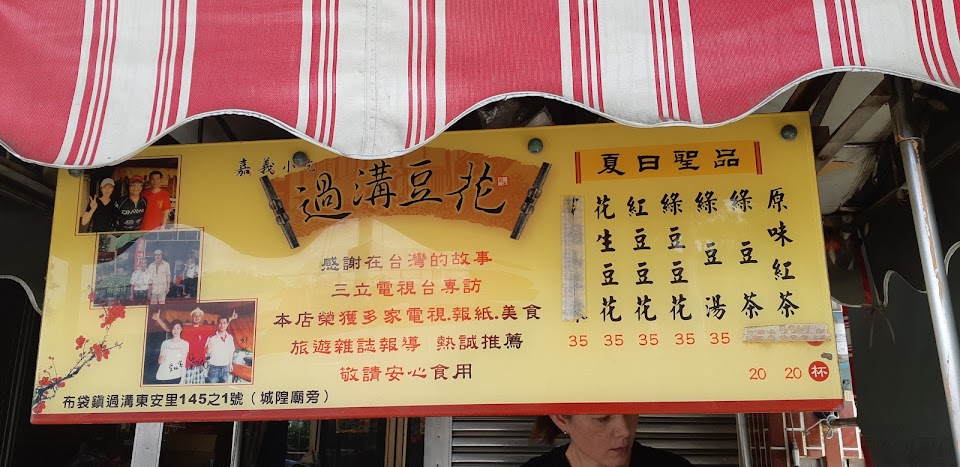 嘉義小吃
過溝豆花
感謝在台灣的故事
三立電視台專訪
本店榮獲多家電視.報紙.美食
旅遊雜誌報導 熱誠推薦
敬請安心食用
布袋鎮過溝東安里145之1號（城隍廟旁）
夏日聖品
原味紅茶
綠豆茶
綠豆湯
綠豆豆花
紅豆豆花
花生豆花
35 35 35 35 35
20 20 杯